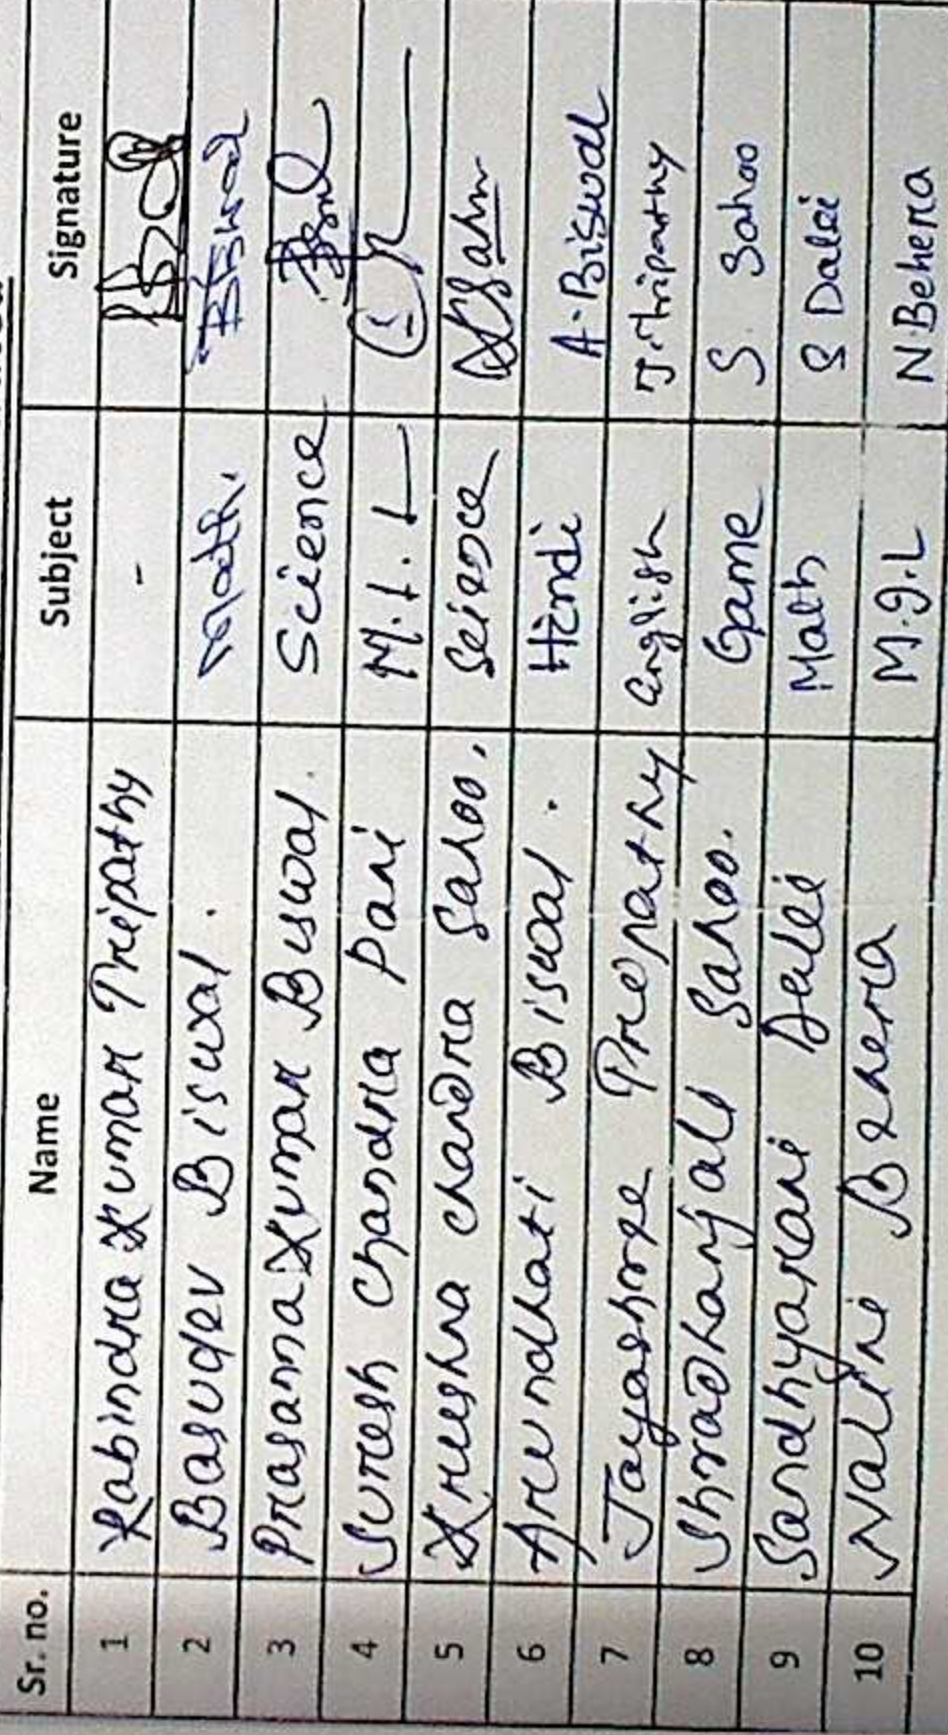 Sr. no. Name Subject Signature
1 Rabindra Kumar Tripathy -
2 Basudev Biswal. Math. Biswal
3 Prasanna Kumar Biswal. Science
4 Suresh Chandra Pani M.I.L
5 Krushna chandra Sahoo. Science
6 Arundhati Biswal. Hindi A. Biswal
7 Jayashree Tripathy English J. Tripathy
8 Shradhanjali Sahoo. Game S. Sahoo
9 Sandhyarani Dalei Math S Dalei
10 Nalini Behera M.I.L N. Behera